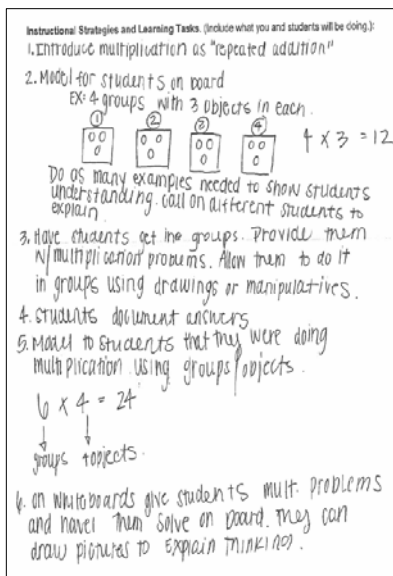 Instructional Strategies and Learning Tasks. (Include what you and students will be doing.):
1. Introduce multiplication as "repeated addition"
2. Model for students on board
EX: 4 groups with 3 objects in each.
① ② ③ ④
4 x 3 = 12
Do as many examples needed to show students
understanding. call on different students to
explain
3. Have students get into groups. Provide them
w/ multiplication problems. Allow them to do it
in groups using drawings or manipulatives.
4. Students document answers
5. Model to students that they were doing
multiplication using groups/objects.
6 x 4 = 24
groups 4 objects.
6. on whiteboards give students mult. problems
and have them solve on board. They can
draw pictures to explain thinking.